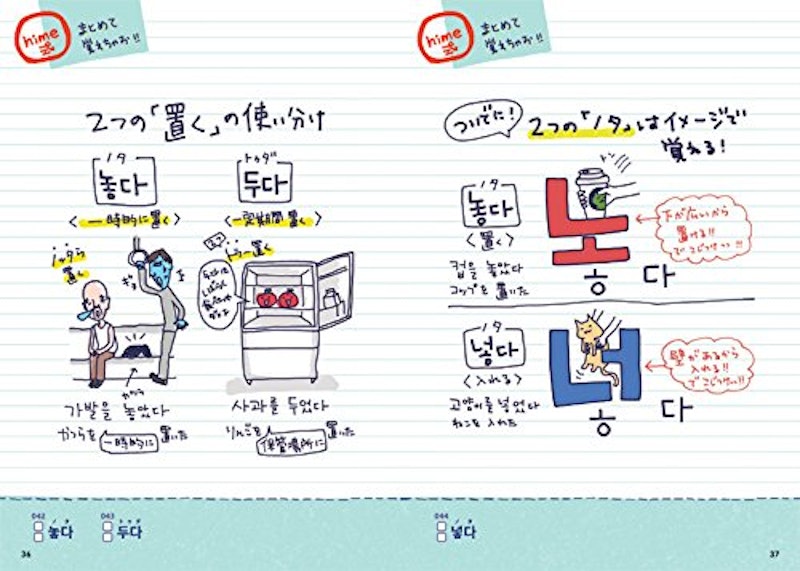 hime式
まとめて
覚えちゃお!!
2つの「置く」の使い分け
ノタ
놓다
〈一時的に置く〉
トゥダ
두다
〈一定期間置く〉
ノッタら
置く
トゥー置く
가발을 놓았다
かつらを一時的に置いた
かつら
사과를 두었다
りんごを保管場所に置いた
042
놓다
043
두다
36
hime式
まとめて
覚えちゃお!!
ついでに!
2つの「ノタ」はイメージで
覚える!
ノタ
놓다
〈置く〉
컵을 놓았다
コップを置いた
トン
노
ㅎ 다
下が広いから
置ける!!
でこじつけっ!!
ノタ
넣다
〈入れる〉
고양이를 넣었다
ねこを入れた
너
ㅎ 다
壁があるから
入れる!!
でこじつけっ!!
044
넣다
37